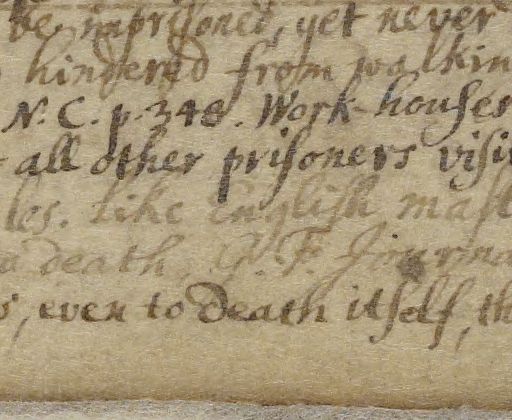 be imprisoned, yet never
hindered from walkin
N. C. p. 348. Work-houses
all other prisoners visi
les. like English mast
death, G. F. Journa
, even to Death itself, th